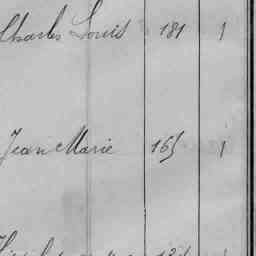 Charles Louis 181 1
Jean Marie 165 1